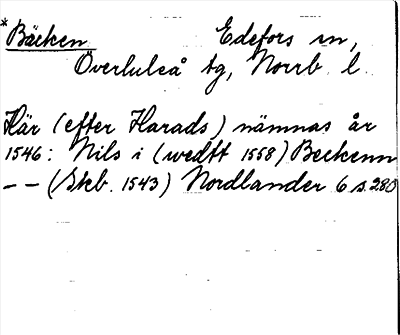 *Bäcken Edefors sn,
Överluleå tg, Norrb. l.
Här (efter Harads) nämnas år
1546: Nils i (wedtt 1558) Beckenn
-- (Skb. 1543) Nordlander 6 s. 280